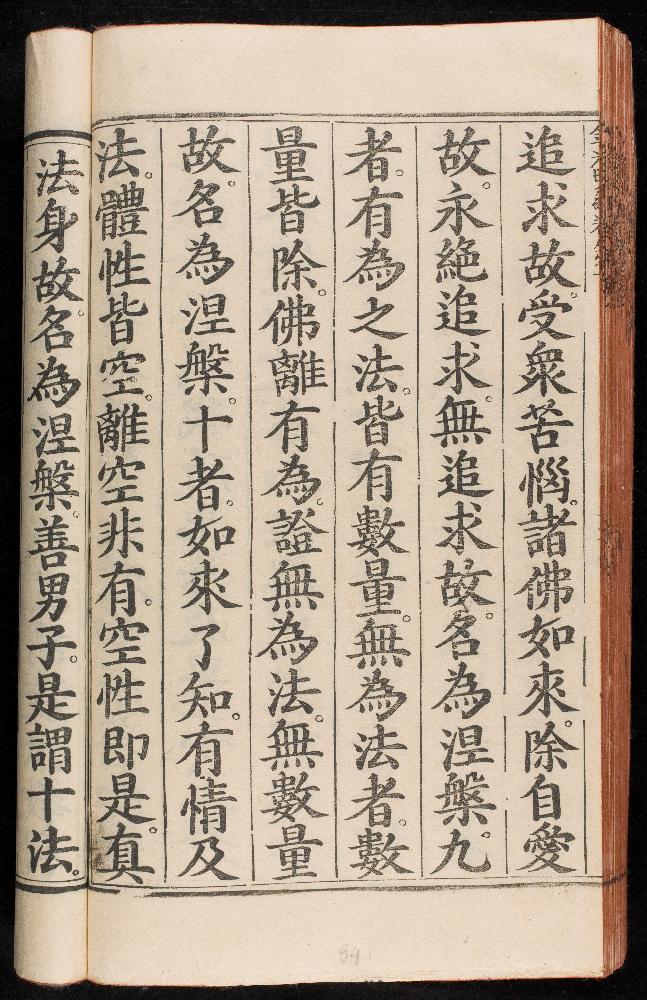 追求故受衆苦惱。諸佛如來。除自愛
故。永絶追求。無追求故。名為涅槃。九
者。有為之法。皆有數量。無為法者。數
量皆除。佛離有為。證無為法。無數量
故。名為涅槃。十者。如來了知。有情及
法。體性皆空。離空非有。空性即是。真
法身故。名為涅槃。善男子。是謂十法。
54